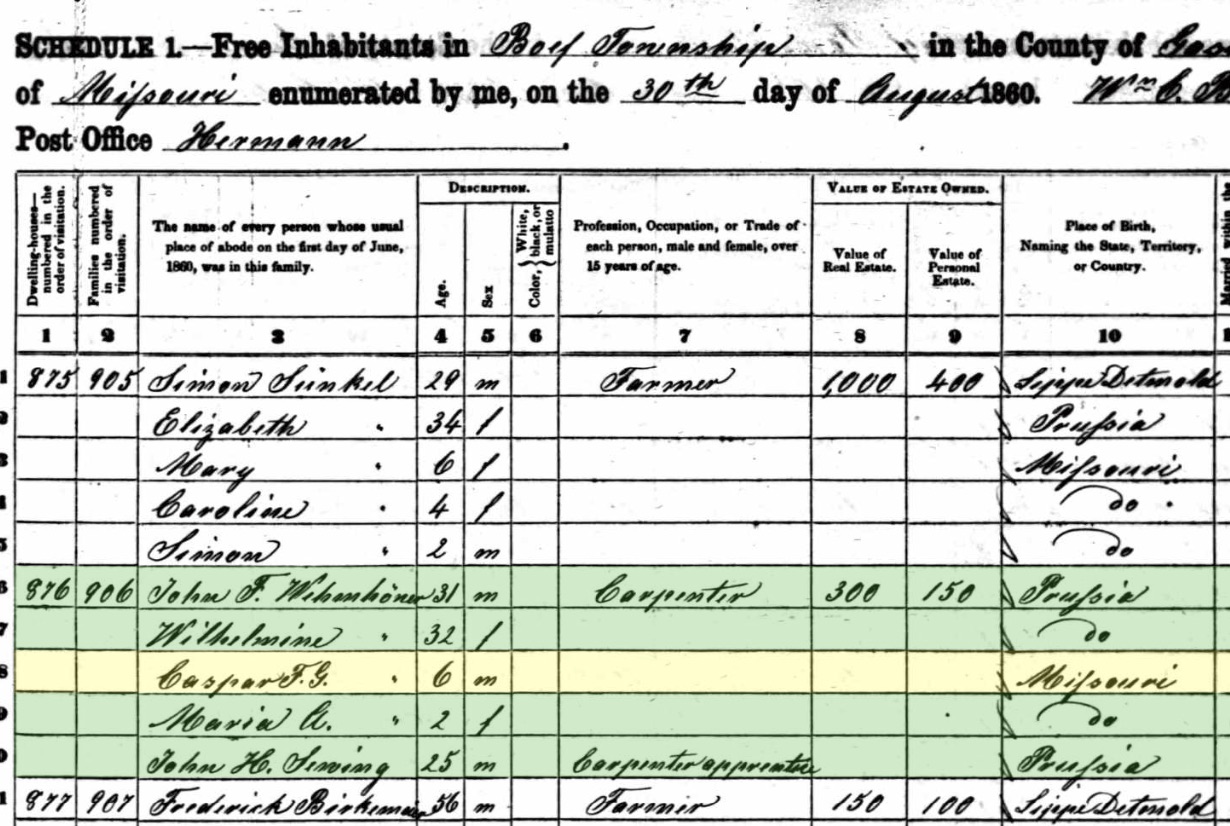 SCHEDULE 1.—Free Inhabitants in Boef Township in the County of Gas
of Missouri enumerated by me, on the 30th day of August 1860. Wm C.
Post Office Hermann.
Dwelling-houses—numbered in the order of visitation.
Families numbered in the order of visitation.
The name of every person whose usual place of abode on the first day of June, 1860, was in this family.
DESCRIPTION.
Age.
Sex
Color, { White, black, or mulatto
Profession, Occupation, or Trade of each person, male and female, over 15 years of age.
VALUE OF ESTATE OWNED.
Value of Real Estate.
Value of Personal Estate.
Place of Birth, Naming the State, Territory, or Country.
Married within the
1 2 3 4 5 6 7 8 9 10 1
1 875 905 Simon Sünkel 29 m Farmer 1,000 400 Lippe Detmold
2 Elizabeth " 34 f Prussia
3 Mary " 6 f Missouri
4 Caroline " 4 f do
5 Simon " 2 m do
6 876 906 John F. Wehmhöner 31 m Carpenter 300 150 Prussia
7 Wilhelmine " 32 f do
8 Caspar F. G. " 6 m Missouri
9 Maria A. " 2 f do
0 John H. Sewing 25 m Carpenter apprentice Prussia
1 877 907 Frederick 56 m Farmer 150 100 Lippe Detmold